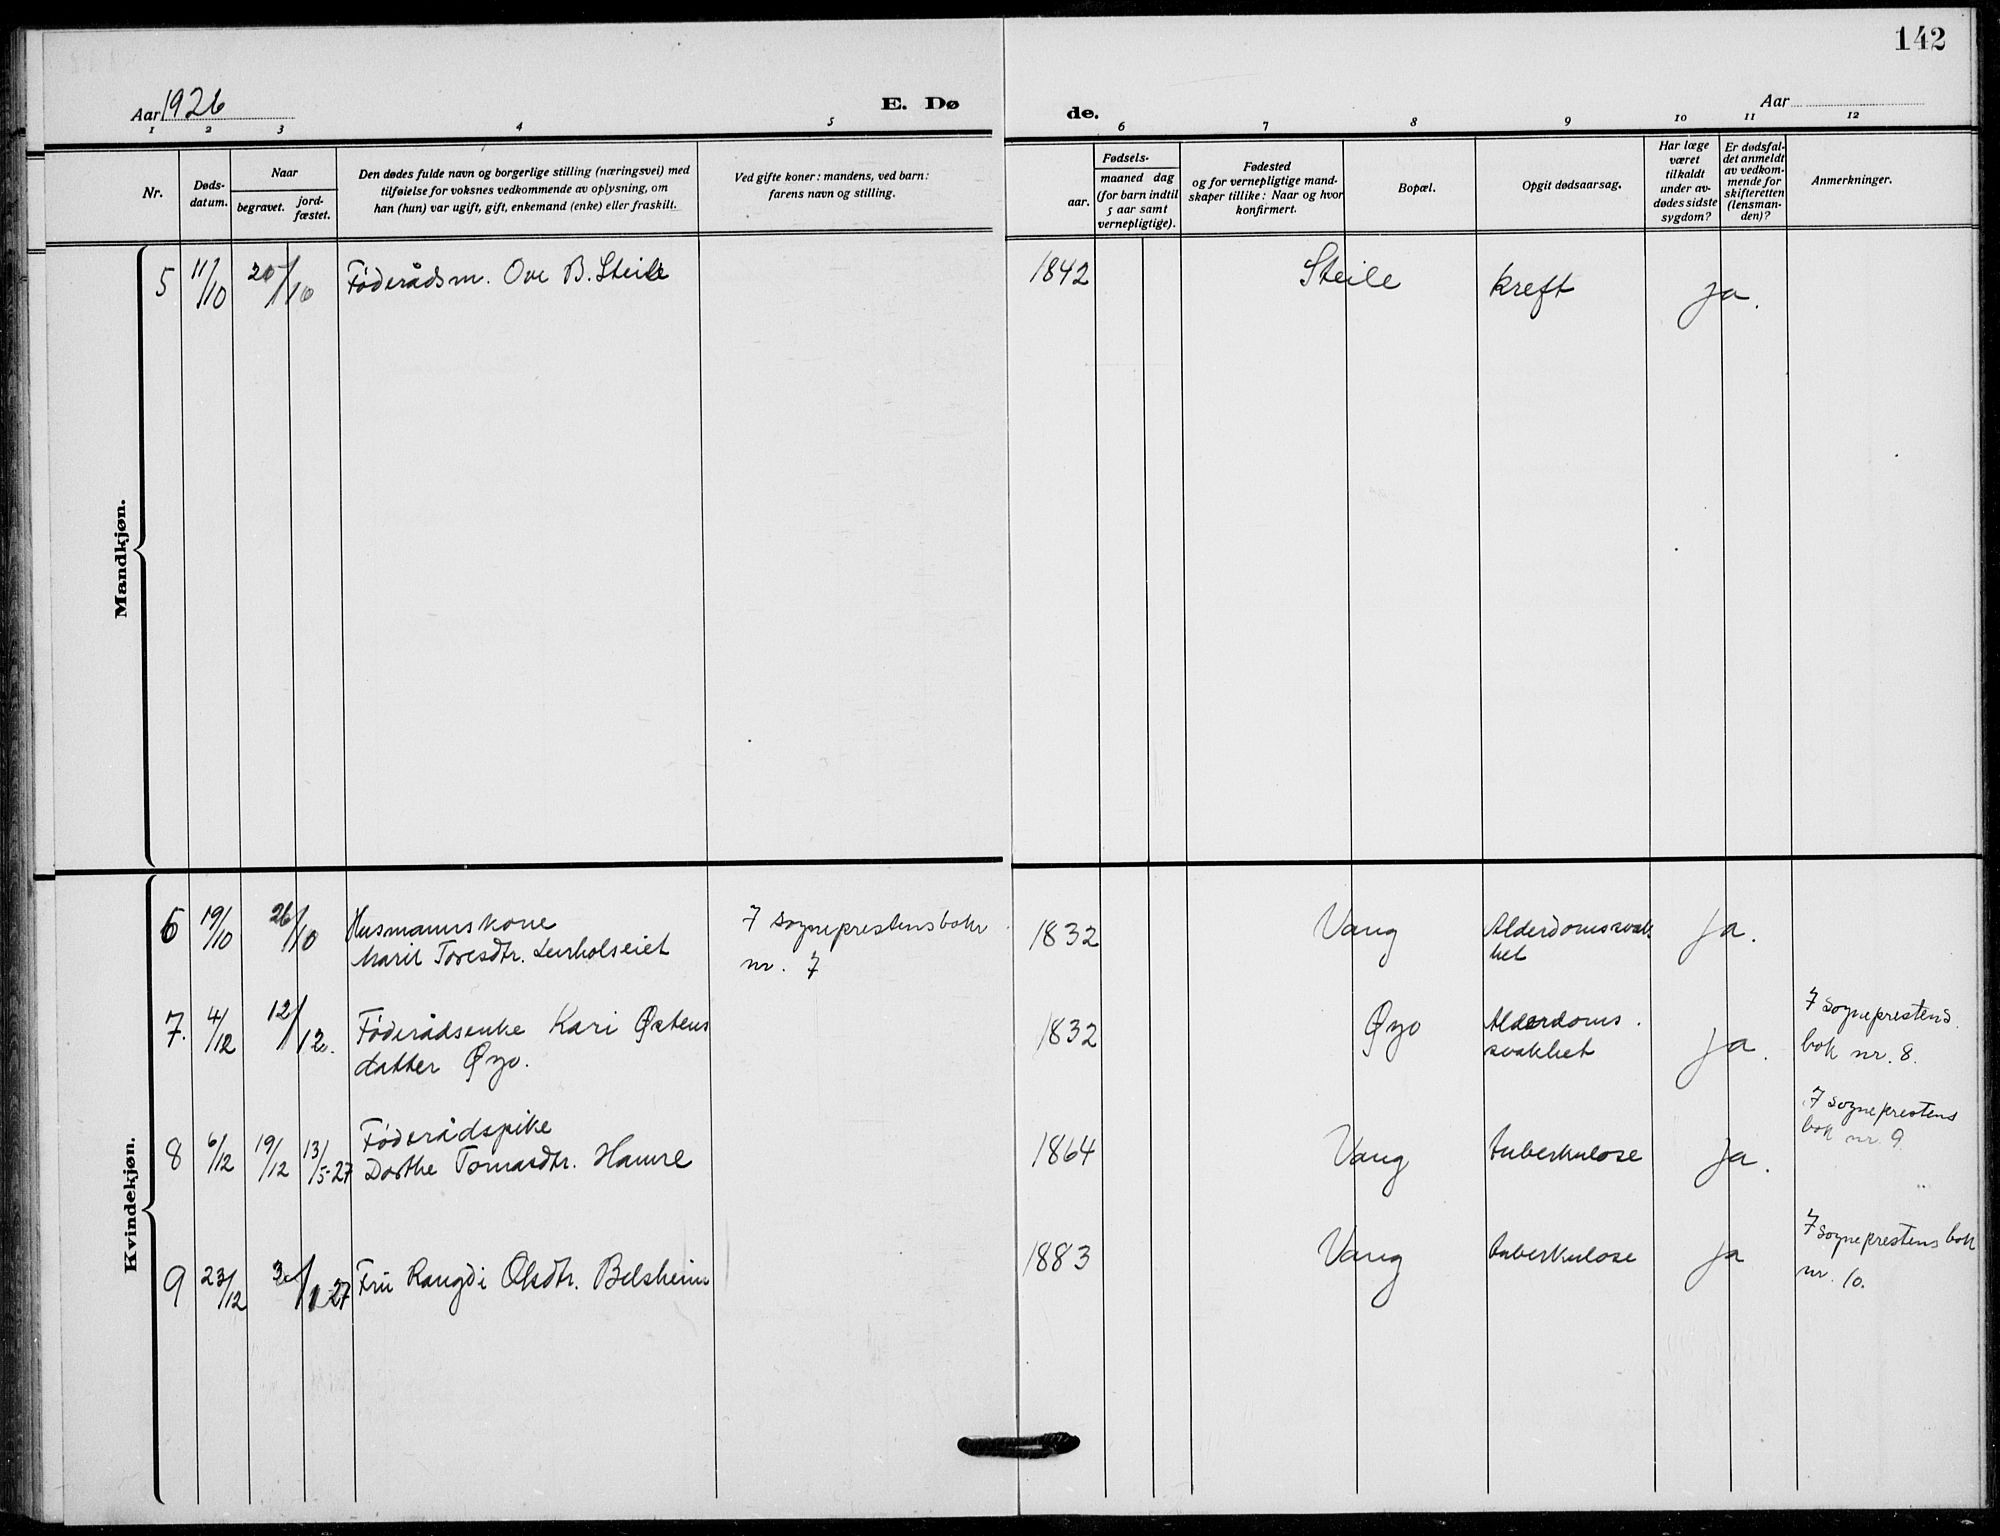 142
Aar 1926 E. Dø de. Aar
1 2 3 4 5 6 7 8 9 10 11 12
Nr.
Døds-
datum.
Naar
begravet.
jord-
fæstet.
Den dødes fulde navn og borgerlige stilling (næringsvei) med
tilføielse for voksnes vedkommende av oplysning, om
han (hun) var ugift, gift, enkemand (enke) eller fraskilt.
Ved gifte koner: mandens, ved barn:
farens navn og stilling.
Fødsels-
aar.
maaned dag
(for barn indtil
5 aar samt
vernepligtige).
Fødested
og for vernepligtige mand-
skaper tillike: Naar og hvor
konfirmert.
Bopæl.
Opgit dødsaarsag.
Har læge
været
tilkaldt
under av-
dødes sidste
sygdom?
Er dødsfal-
det anmeldt
av vedkom-
mende for
skifteretten
(lensman-
den)?
Anmerkninger.
Mandkjøn.
5 11/10 20/10 Föderådsm. Ove B. Steile 1842 Steile kreft ja.
Kvindekjøn.
6 19/10 26/10 Husmannskone
Marit Toresdtr. Leirholseiet
7 sogneprestens bok
nr. 7
1832 Vang Alderdomssvak
het
ja.
7. 4/12 12/12. Föderådsenke Kari Østens
datter Øyo.
1832 Øyo Alderdoms
svakhet
ja.
7 sogneprestens
bok nr. 8.
8 6/12 19/12 13/5-27 Föderådspike
Dorthe Tomasdtr. Hamre
1864 Vang tuberkulose ja.
7 sogneprestens
bok nr. 9
9 23/12 3/1-27 Fru Rangdi Olsdtr. Belsheim 1883 Vang tuberkulose ja
7 sogneprestens bok
nr. 10.